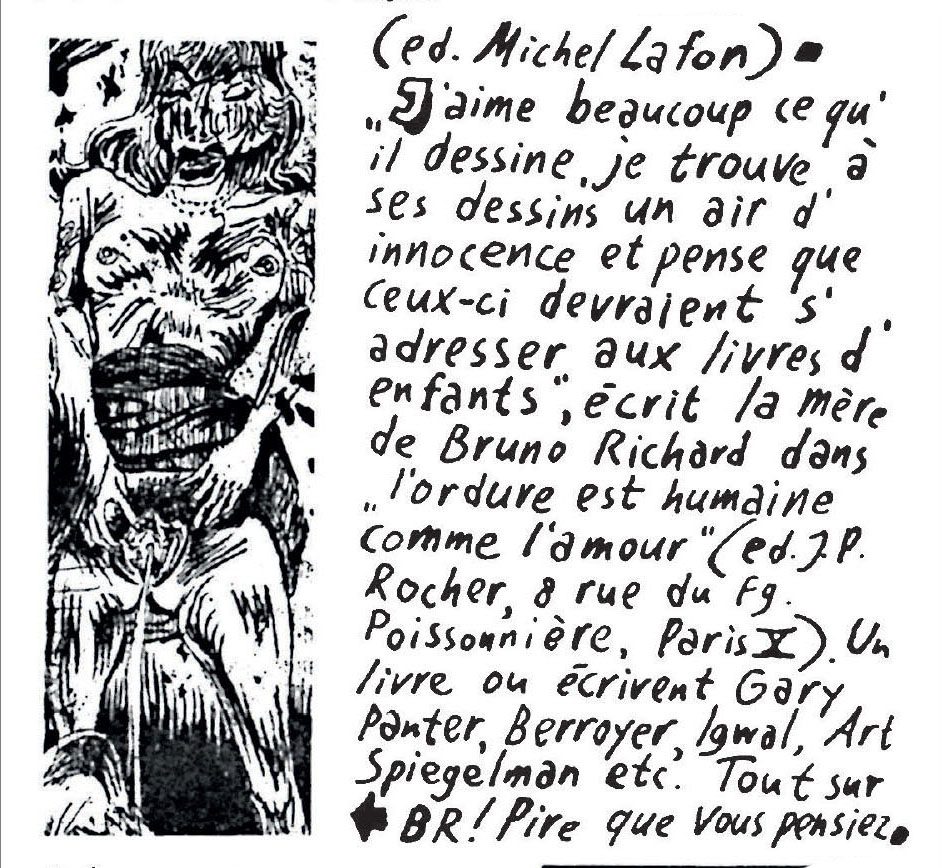 (ed. Michel Lafon) ▪
„J'aime beaucoup ce qu'
il dessine, je trouve à
ses dessins un air d'
innocence et pense que
ceux-ci devraient s'
adresser aux livres d'
enfants", écrit la mère
de Bruno Richard dans
„l'ordure est humaine
comme l'amour" (ed. J.P.
Rocher, 8 rue du Fg.
Poissonnière, Paris X). Un
livre ou écrivent Gary
Panter, Berroyer, Igwal, Art
Spiegelman etc. Tout sur
← BR! Pire que vous pensiez.